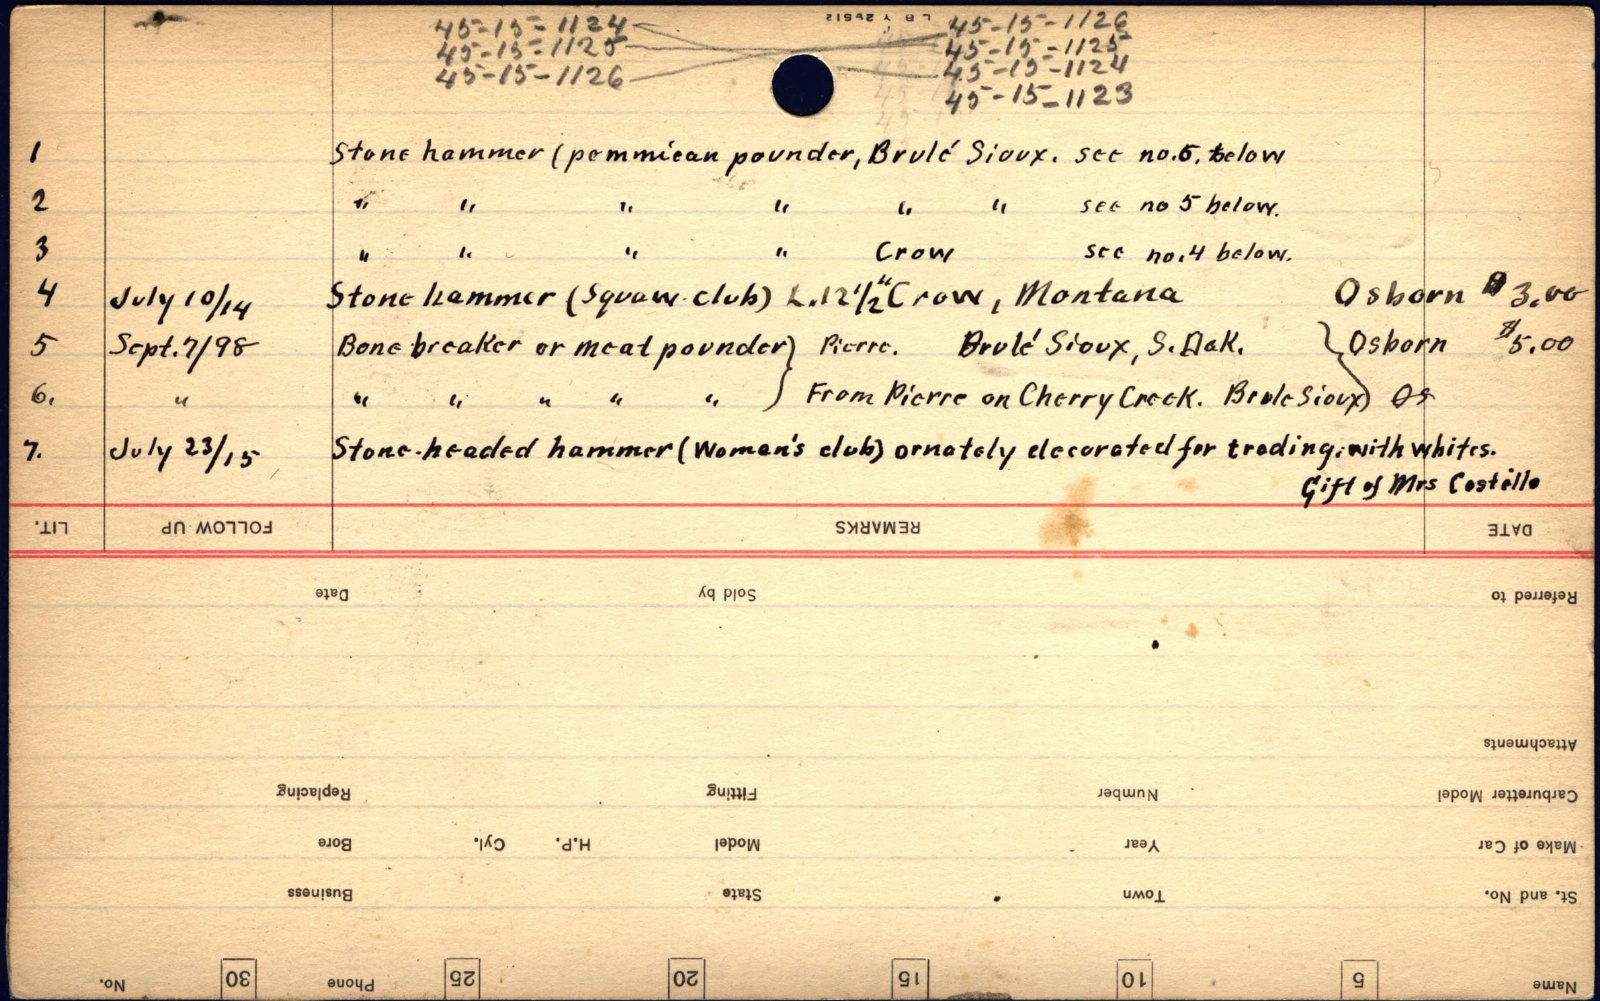 LB Y 26512
45-15-1124 45-15-1126
45-15-1125 45-15-1125
45-15-1126 45-15-1124
45-15-1123
1 Stone hammer (pemmican pounder, Brulé Sioux. see no.5, below
2 " " " " " " see no 5 below.
3 " " " " Crow see no.4 below.
4 July 10/14 Stone hammer (Squaw club) L.12 1/2" Crow, Montana Osborn $3.00
5 Sept.7/98 Bone breaker or meat pounder} Pierre. Brulé Sioux, S.Dak. } Osborn $5.00
6. " " " " " " } From Pierre on Cherry Creek. Brule Sioux) Os
7. July 23/15 Stone-headed hammer (Woman's club) ornately decorated for trading with whites.
Gift of Mrs Costello
LIT. FOLLOW UP REMARKS DATE
Date Sold by Referred to
Attachments
Replacing Fitting Number Carburetter Model
Bore Cyl. H.P. Model Year Make of Car
Business State Town St. and No.
No. 30 Phone 25 20 15 10 5 Name